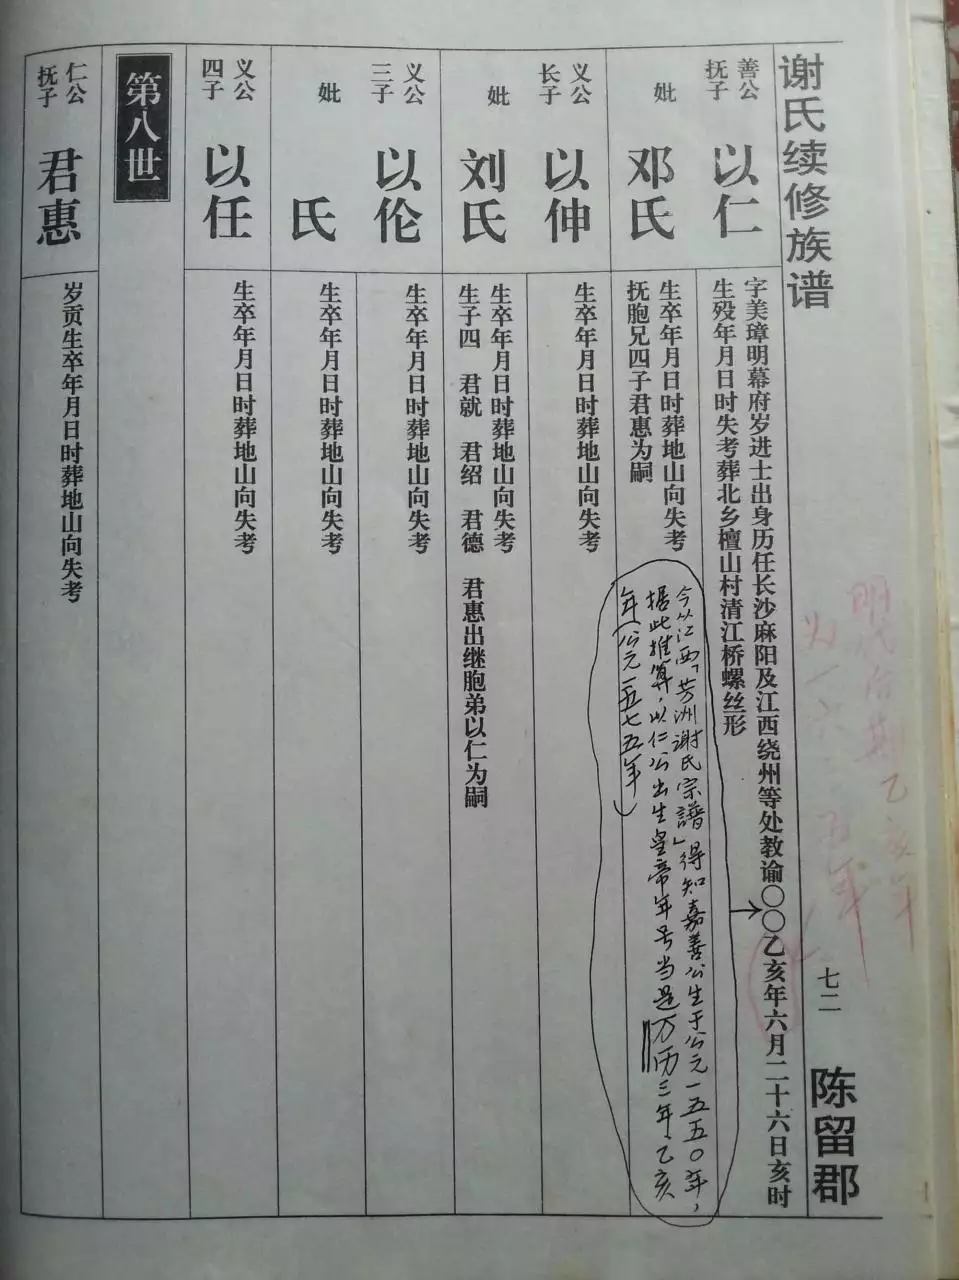 谢氏续修族谱
七二
陈留郡
善公
抚子
以仁
字美璋明幕府岁进士出身历任长沙麻阳及江西绕州等处教谕〇〇乙亥年六月二十六日亥时
生殁年月日时失考葬北乡檀山村清江桥螺丝形
妣
邓氏
生卒年月日时葬地山向失考
抚胞兄四子君惠为嗣
今从江西「芳洲谢氏宗譜」得知嘉善公生于公元一五五〇年,
据此推算,以仁公出生皇帝年号当是万历三年、乙亥
年(公元一五七五年)
义公
长子
以伸
生卒年月日时葬地山向失考
妣
刘氏
生卒年月日时葬地山向失考
生子四 君就 君绍 君德 君惠出继胞弟以仁为嗣
义公
三子
以伦
生卒年月日时葬地山向失考
妣
氏
生卒年月日时葬地山向失考
义公
四子
以任
生卒年月日时葬地山向失考
第八世
仁公
抚子
君惠
岁贡生卒年月日时葬地山向失考
明代后期乙亥年